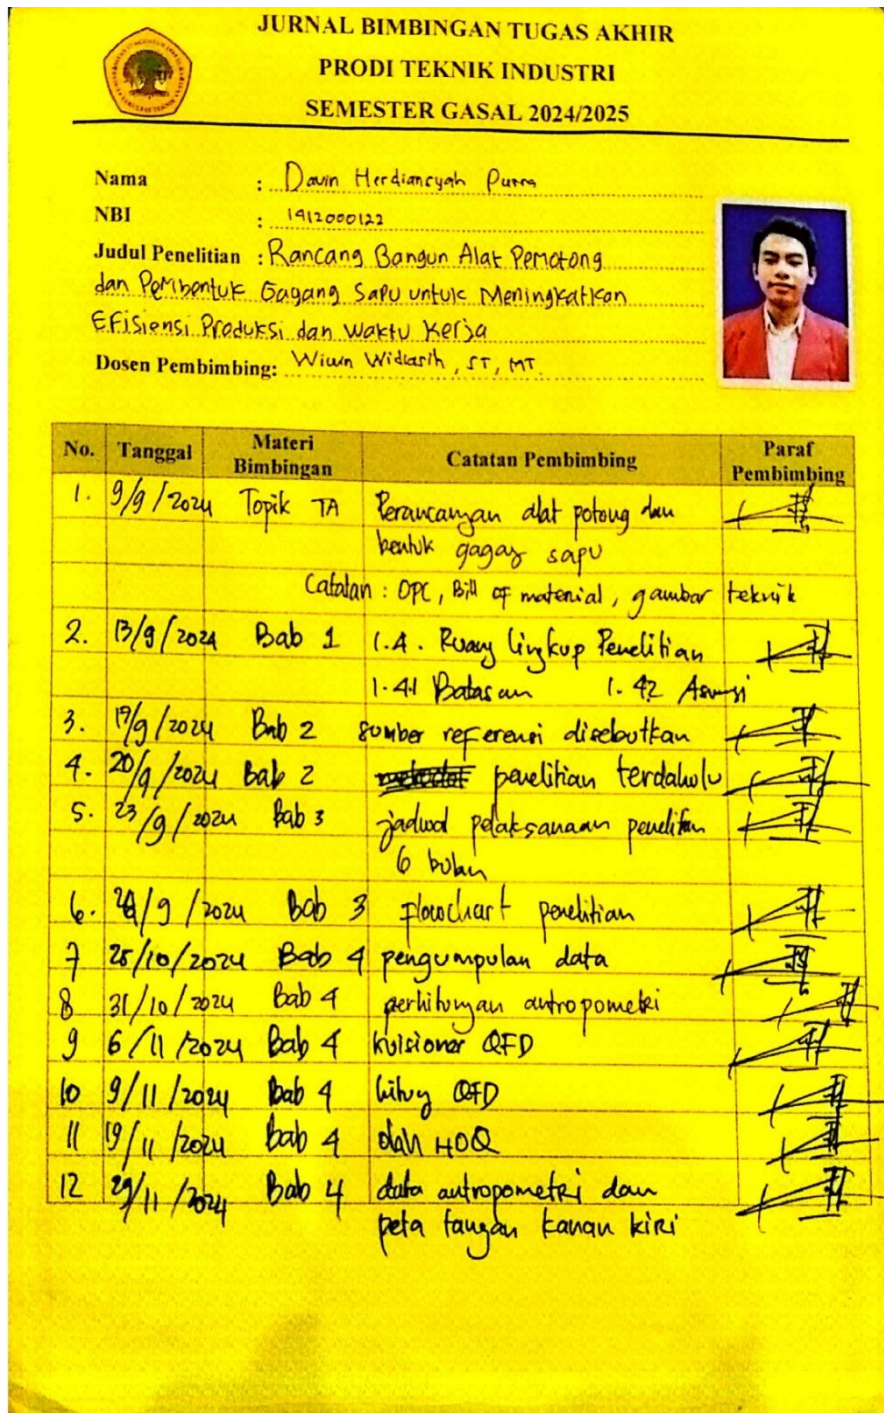 JURNAL BIMBINGAN TUGAS AKHIR
PRODI TEKNIK INDUSTRI
SEMESTER GASAL 2024/2025
Nama : Davin Herdiansyah Putra
NBI : 1412000122
Judul Penelitian : Rancang Bangun Alat Pemotong
dan Pembentuk Gagang Sapu untuk Meningkatkan
Efisiensi Produksi dan Waktu Kerja
Dosen Pembimbing: Wiwin Widiasih, ST, MT.
No. Tanggal Materi Bimbingan Catatan Pembimbing Paraf Pembimbing
1. 9/9/2024 Topik TA Perancangan alat potong dan
bentuk gagang sapu
Catatan : OPC, Bill of material, gambar teknik
2. 13/9/2024 Bab 1 1.4. Ruang lingkup Penelitian
1.41 Batasan 1.42 Asumsi
3. /9/2024 Bab 2 sumber referensi disebutkan
4. 20/9/2024 Bab 2 penelitian terdahulu
5. 23/9/2024 Bab 3 jadwal pelaksanaan penelitian
6 bulan
6. /9/2024 Bab 3 flowchart penelitian
7 25/10/2024 Bab 4 pengumpulan data
8 31/10/2024 Bab 4 perhitungan antropometri
9 6/11/2024 Bab 4 kuisioner QFD
10 9/11/2024 Bab 4 hitung QFD
11 19/11/2024 Bab 4 olah HOQ
12 29/11/2024 Bab 4 data antropometri dan
peta tangan kanan kiri